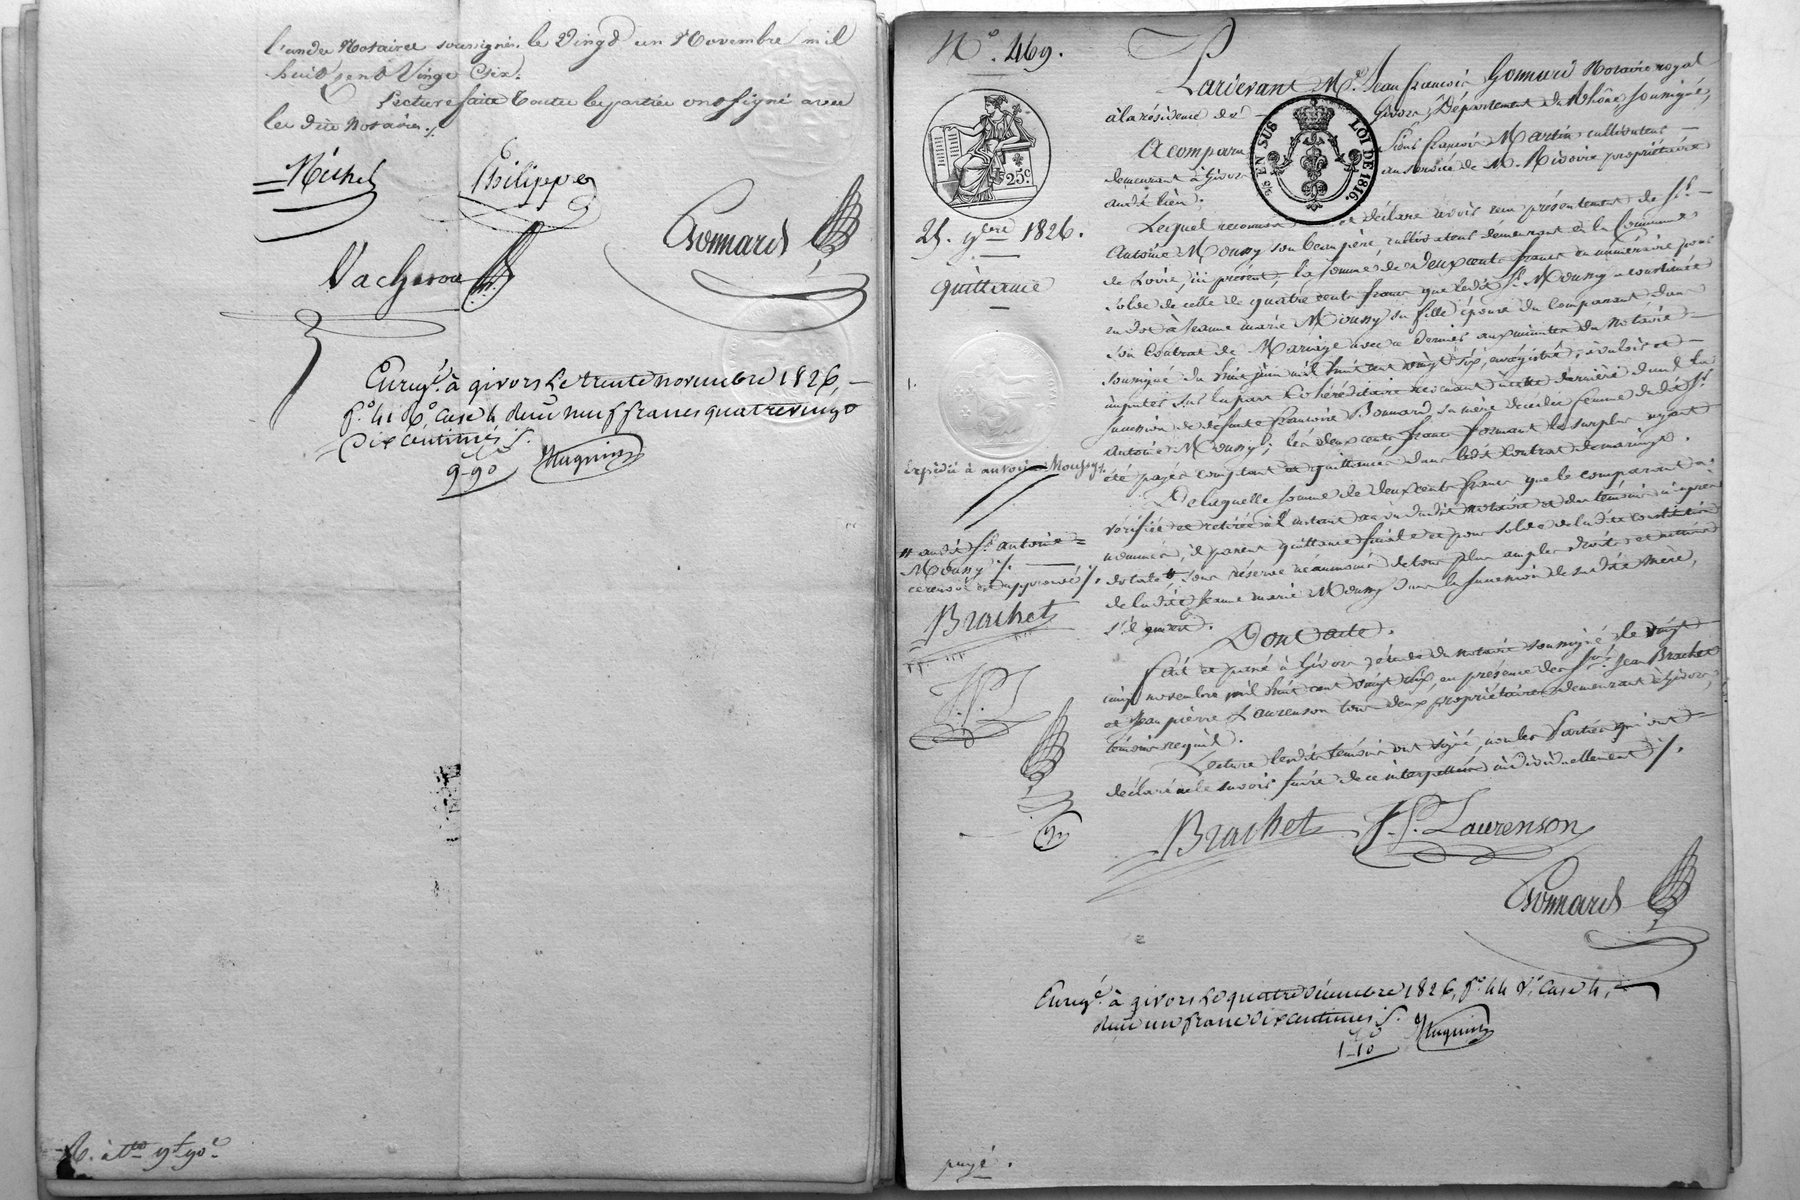 l'un des Notaires soussignés le Vingt un Novembre mil
huit cent Vingt Six.
Lecture faite toutes les parties ont signé avec
les dits Notaires ./.
Michel
Philippe
Gonnard
Vacheron
Enregé. à givors le trente novembre 1826,
fo. 41 Ro. case 4, reçu neuf francs quatre vingt
Dix centimes
9-90 Huguin
R. à 9f 90c
No. 469.
25 9bre 1826.
quittance
25c
EN SUS
LOI DE 1816.
Pardevant Me. Jean françois Gonnard Notaire royal
à la résidence de Givors, Département du Rhône, soussigné,
A comparu Sieur françois Martin cultivateur
demeurant à Givors au service de M. propriétaire
audit lieu.
Lequel reconnait et déclare avoir reçu présentement de Sr.
Antoine Moussy son beau père, cultivateur demeurant en la Commune
de Loire, ici présent, la somme de Deux cents francs en numéraire pour
solde de celle de quatre cents francs que ledit Sr. Moussy a constituée
en dot à Jeanne marie Moussy sa fille épouse du comparant dans
son Contrat de Mariage avec ce dernier aux minutes du Notaire
soussigné du huit juin mil huit cent vingt six, enregistré, à valoir et
imputer sur la part héréditaire revenant à cette dernière dans la
succession de défunte françoise Bonnard sa mère décédée femme dudit Sr.
Antoine Moussy; les deux cents francs formant le surplus ayant
été payés comptant et quittancés dans ledit Contrat de mariage.
De laquelle somme de deux cents francs que le comparant a
vérifiée et retirée à l'instant au vu dudit notaire et des témoins ci après
nommés, il passe quittance finale et pour solde de ladite constitution
dotale, sous réserve néanmoins de tous plus amples droits
de ladite Jeanne marie Moussy dans la succession de sadite mère,
s'il y en a.
Dont acte.
Fait et passé à Givors, étude du notaire soussigné le vingt
cinq novembre mil huit cent vingt six, en présence de Srs. Jean Brachet
et Jean pierre Laurenson tous deux propriétaires demeurant à Givors,
témoins requis.
Lecture lesdits témoins ont signé, non les Parties qui ont
déclaré ne le savoir faire de ce interpellées individuellement ./.
Expédié à antoine Moussy
audit Sr. antoine
Moussy ./.
ce renvoi est approuvé ./.
Brachet
J. P. L
Brachet
J. P. Laurenson
Gonnard
Enregé. à givors le quatre Décembre 1826, fo. 44 Vo. case 4,
reçu un franc dix centimes
1-10 Huguin
payé.